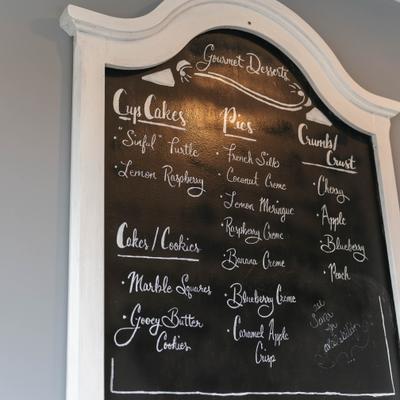 Gourmet Desserts
Cup Cakes
• "Sinful" Turtle
• Lemon Raspberry
Cakes/Cookies
• Marble Squares
• Gooey Butter
Cookies
Pies
• French Silk
• Coconut Creme
• Lemon Meringue
• Raspberry Creme
• Banana Creme
• Blueberry Creme
• Caramel Apple
Crisp
Crumb/
Crust
• Cherry
• Apple
• Blueberry
• Peach